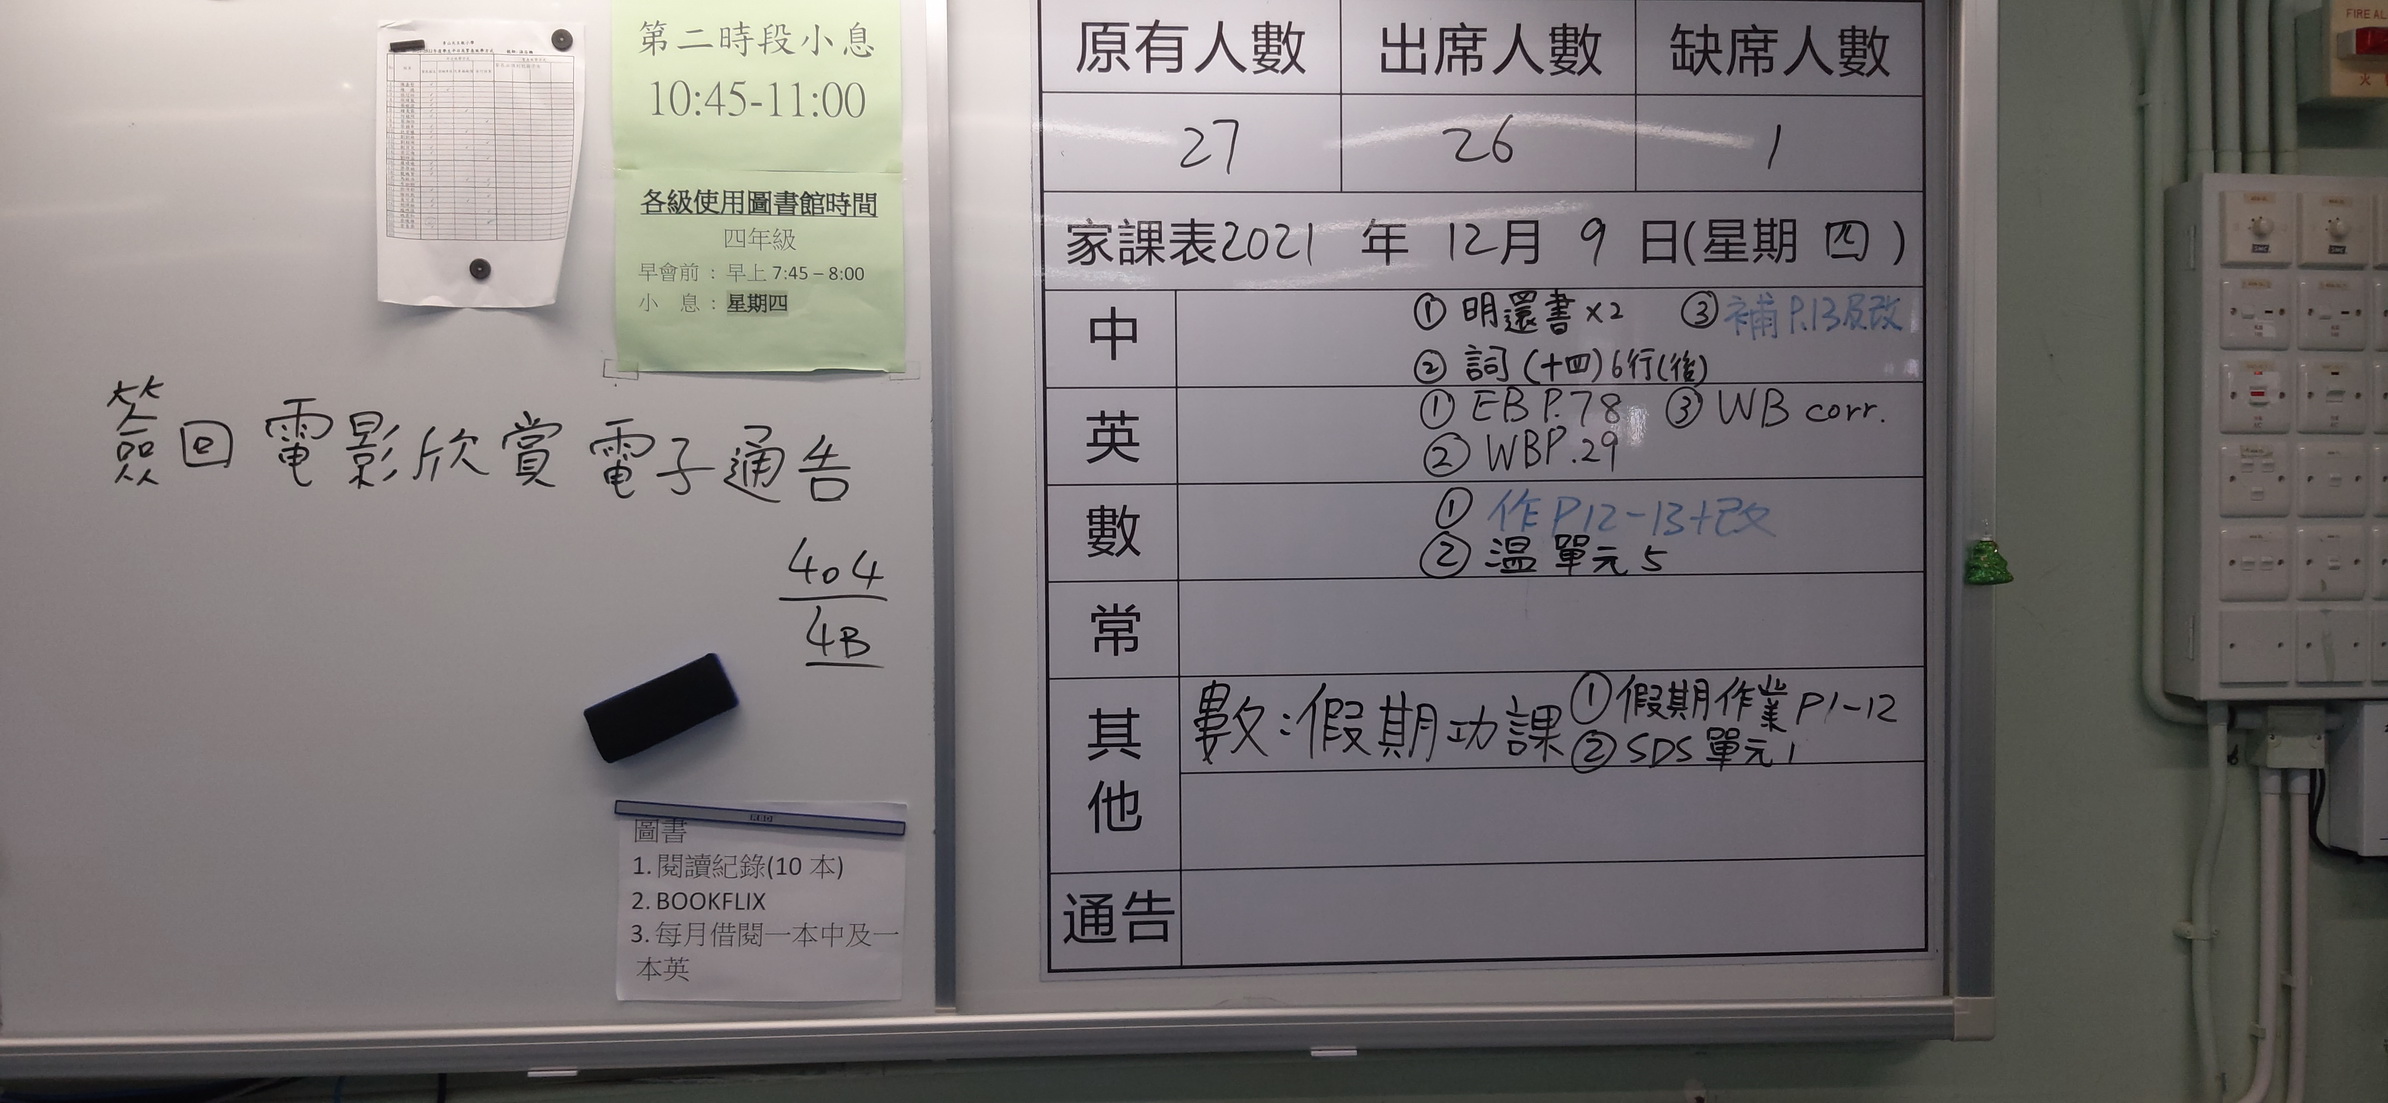 第二時段小息
10:45-11:00
各級使用圖書館時間
四年級
早會前 : 早上 7:45 – 8:00
小 息 : 星期四
簽回電影欣賞電子通告
404
4B
圖書
1. 閱讀紀錄(10 本)
2. BOOKFLIX
3. 每月借閱一本中及一
本英
原有人數 出席人數 缺席人數
27 26 1
家課表2021 年 12月 9 日(星期 四 )
中
① 明還書×2 ③補P.13及改
② 詞(十四)6行(後)
英
① EB P.78 ③ WB corr.
② WBP.29
數
① 作P12-13+改
② 温單元5
常
其他
數:假期功課①假期作業P1-12
②SDS單元1
通告
FIRE AL
火